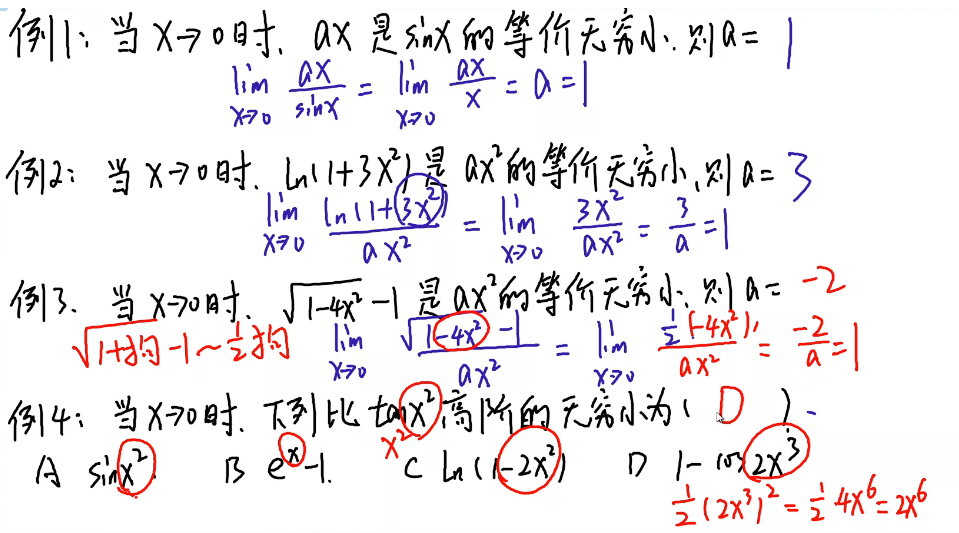 例1: 当 x→0时, ax 是 sinx 的等价无穷小. 则a= 1
lim x→0 ax/sinx = lim x→0 ax/x = a = 1
例2: 当 x→0时, ln(1+3x²) 是 ax²的等价无穷小, 则 a= 3
lim x→0 ln(1+3x²)/ax² = lim x→0 3x²/ax² = 3/a = 1
例3. 当 x→0时. √(1-4x²) -1 是 ax²的等价无穷小. 则 a= -2
√(1+狗) -1 ~ 1/2 狗 lim x→0 (√(1-4x²) -1)/ax² = lim x→0 1/2(-4x²)/ax² = -2/a = 1
例4: 当 x→0时. 下列比 tanx² 高阶的无穷小为( D )
x²
A sinx² B eˣ-1. C ln(1-2x²) D 1-cos2x³
1/2(2x³)² = 1/2·4x⁶ = 2x⁶